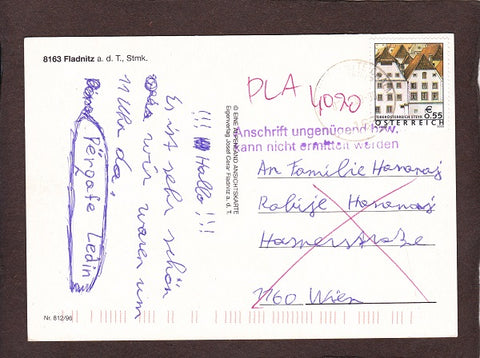 8163 Fladnitz a. d. T., Stmk.
!!! Hallo !!!
Es ist sehr schön
wir waren um
11 Uhr da.
Ledin
Nr. 812/96
© EINE ANSICHTSKARTE
Eigenverlag Josef Fladnitz a. d. T.
PLA
4020
€ 0,55
ÖSTERREICH
Anschrift ungenügend bzw.
kann nicht ermittelt werden
An Familie Hananaj
Rabije Hananaj
Hamerstraße
1160 Wien